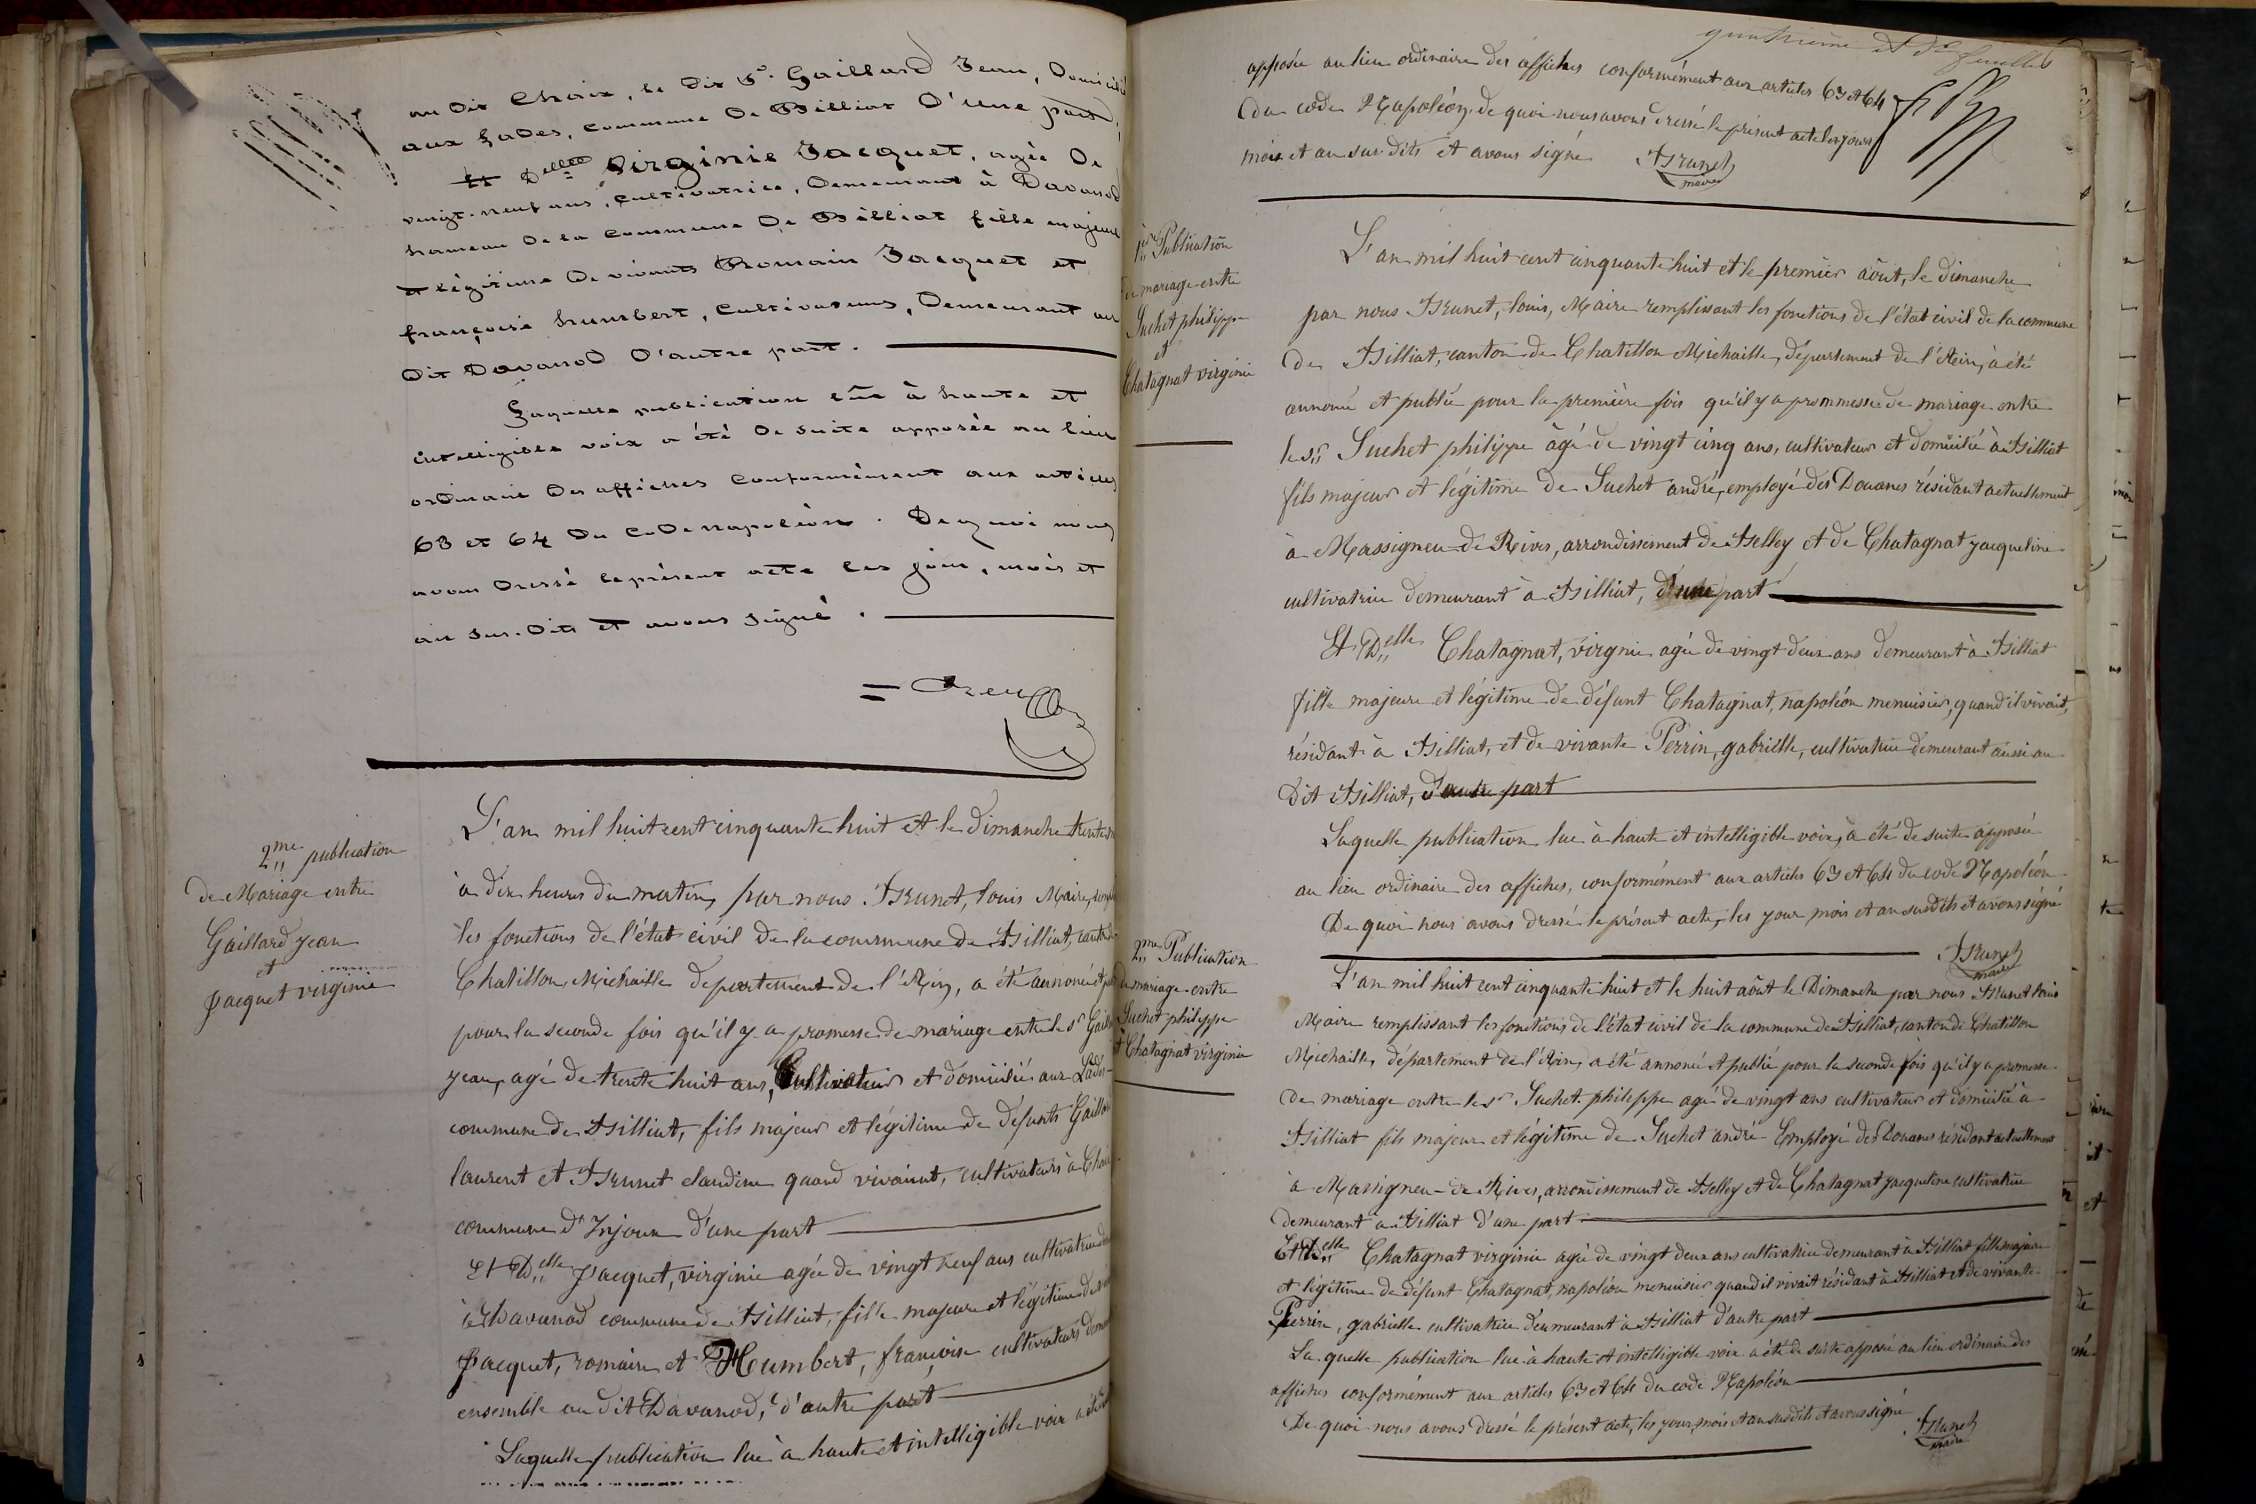 au dit Choix, le dit Sr. Gaillard Jean, Domicilié
aux Lades, commune De Billiat D'une part,
Et Delle Virginie Jacquet, agée De
vingt-neuf ans, cultivatrice, Demeurant à Davanod
hameau De la commune De Billiat fille majeure
et légitime De vivants Romain Jacquet et
françoise humbert, cultivateurs, Demeurant au
Dit Davanod D'autre part.
Laquelle publication lûe à haute et
intelligible voix a été De suite apposée au lieu
ordinaire Des affiches Conformément aux articles
63 et 64 Du Code napoléon. De quoi nous
avons Dressé le présent acte les jour, mois et
an sus-Dits et avons signé.
2me publication
de Mariage entre
Gaillard jean
et
Jacquet virginie
L'an mil huit cent cinquante huit et le dimanche
à dix heures du matin, par nous Brunet, louis Maire,
les fonctions de l'état civil de la commune de Billiat, canton de
Chatillon Michaille departement de l'Ain, a été annoncé et
pour la seconde fois qu'il y a promesse de mariage entre le sr
jean, agé de trente huit ans, Cultivateur et domicilié aux Lades
commune de Billiat, fils majeur et légitime de défunts
laurent et Brunet claudine quand vivaient, cultivateurs à
commune d'Injoux d'une part
Et Delle Jacquet, virginie agée de vingt neuf ans cultivatrice
à Davanod commune de Billiat, fille majeure et légitime de
Jacquet, romain et Humbert, françoise cultivateurs
ensemble au dit Davanod, d'autre part
Laquelle publication lue à haute et intelligible voix a été
apposée au lieu ordinaire des affiches conformément aux articles 63 et 64
du code Napoléon, de quoi nous avons dressé le présent acte les jour
mois et an sus dits et avons signé Brunet
maire
1re Publication
de mariage entre
Suchet philippe
et
Chatagnat virginie
L'an mil huit cent cinquante huit et le premier août, le dimanche
par nous Brunet, louis, Maire remplissant les fonctions de l'état civil de la commune
de Billiat, canton de Chatillon Michaille, département de l'Ain, a été
annoncé et publié pour la première fois qu'il y a prommesse de mariage entre
le sr Suchet philippe âgé de vingt cinq ans, cultivateur et domicilié à Billiat
fils majeur et légitime de Suchet andré, employé des Douanes résidant actuellement
à Massigneu-de-Rives, arrondissement de Belley et de Chatagnat jacqueline
cultivatrice demeurant à Billiat, d'une part
Et Delle Chatagnat, virginie agée de vingt deux ans demeurant à Billiat
fille majeure et légitime de défunt Chatagnat, napoléon menuisier, quand il vivait,
résidant à Billiat, et de vivante Perrin, gabrielle, cultivatrice demeurant aussi au
Dit Billiat, d'autre part
Laquelle publication lue à haute et intelligible voix, a été de suite apposée
au lieu ordinaire des affiches, conformément aux articles 63 et 64 du code Napoléon
De quoi nous avons dressé le présent acte, les jour mois et an susdits et avons signé
Brunet
maire
2me Publication
de mariage entre
Suchet philippe
et Chatagnat virginie
L'an mil huit cent cinquante huit et le huit août le Dimanche par nous Brunet louis
Maire remplissant les fonctions de l'état civil de la commune de Billiat, canton de Chatillon
Michaille, département de l'Ain, a été annoncé et publié pour la seconde fois qu'il y a promesse
de mariage entre le sr Suchet philippe agé de vingt ans cultivateur et domicilié à
Billiat fils majeur et légitime de Suchet andré Employé des Douanes résidant actuellement
à Massigneu-de-Rives, arrondissement de Belley et de Chatagnat jacqueline cultivatrice
demeurant à Billiat d'une part
Et Delle Chatagnat virginie agée de vingt deux ans cultivatrice demeurant à Billiat fille majeure
et légitime de défunt Chatagnat, napoléon menuisier quand il vivait résidant à Billiat et de vivante
Perrin, gabrielle cultivatrice demeurant à Billiat d'autre part
La quelle publication lue à haute et intelligible voix a été de suite apposée au lieu ordinaire des
affiches conformément aux articles 63 et 64 du code Napoléon
De quoi nous avons dressé le présent acte, les jour, mois et an susdits et avons signé
Brunet
maire